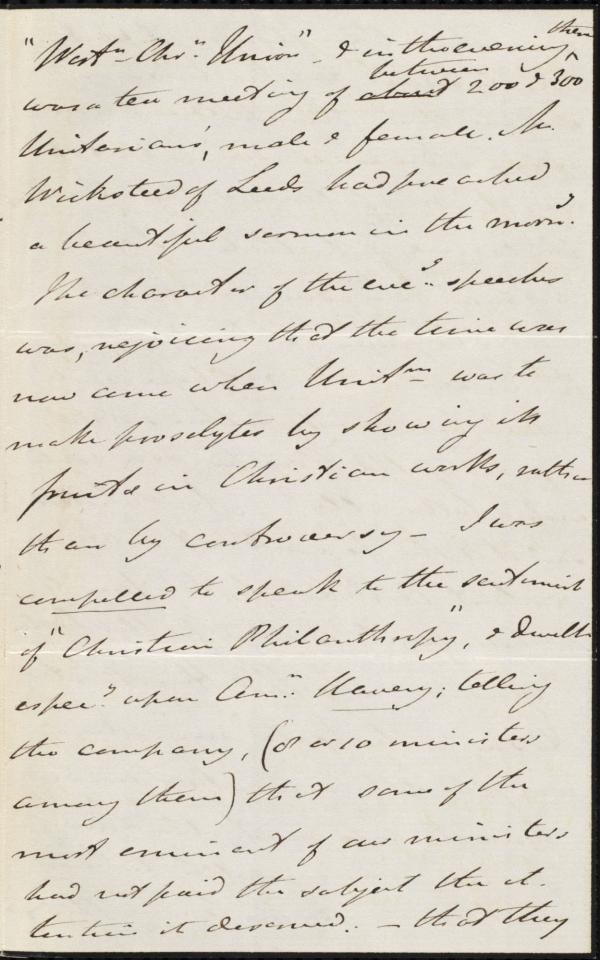 "West.n Chr.n Union" - & in the evening there
was a tea meeting of about between 200 & 300
Unitarians, male & female. Mr.
Wicksteed of Leeds had preached
a beautiful sermon in the morn.g
The character of the eve.g speeches
was, rejoicing that the time was
now come when Unit.m was to
make proselytes by showing its
fruits in Christian works, rather
than by controversy - I was
compelled to speak to the sentiment
of "Christian Philanthropy", & dwelt
espec.y upon Am.n Slavery; telling
the company, (8 or 10 ministers
among them) that some of the
most eminent of our ministers
had not paid the subject the at-
tention it deserved. - that they